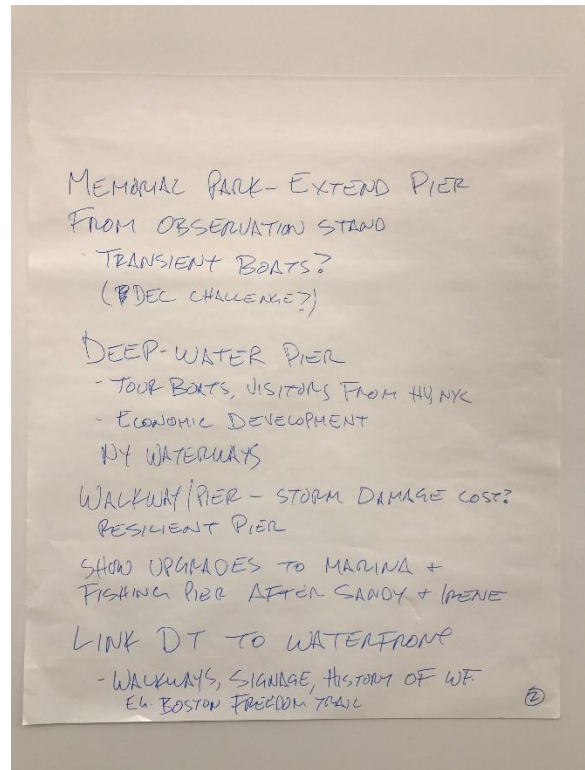 MEMORIAL PARK - EXTEND PIER
FROM OBSERVATION STAND
- TRANSIENT BOATS?
(DEC CHALLENGE?)
DEEP-WATER PIER
- TOUR BOATS, VISITORS FROM NYC
- ECONOMIC DEVELOPMENT
NY WATERWAYS
WALKWAY/PIER - STORM DAMAGE COST?
RESILIENT PIER
SHOW UPGRADES TO MARINA +
FISHING PIER AFTER SANDY + IRENE
LINK DT TO WATERFRONT
- WALKWAYS, SIGNAGE, HISTORY OF WF.
EG. BOSTON FREEDOM TRAIL
2